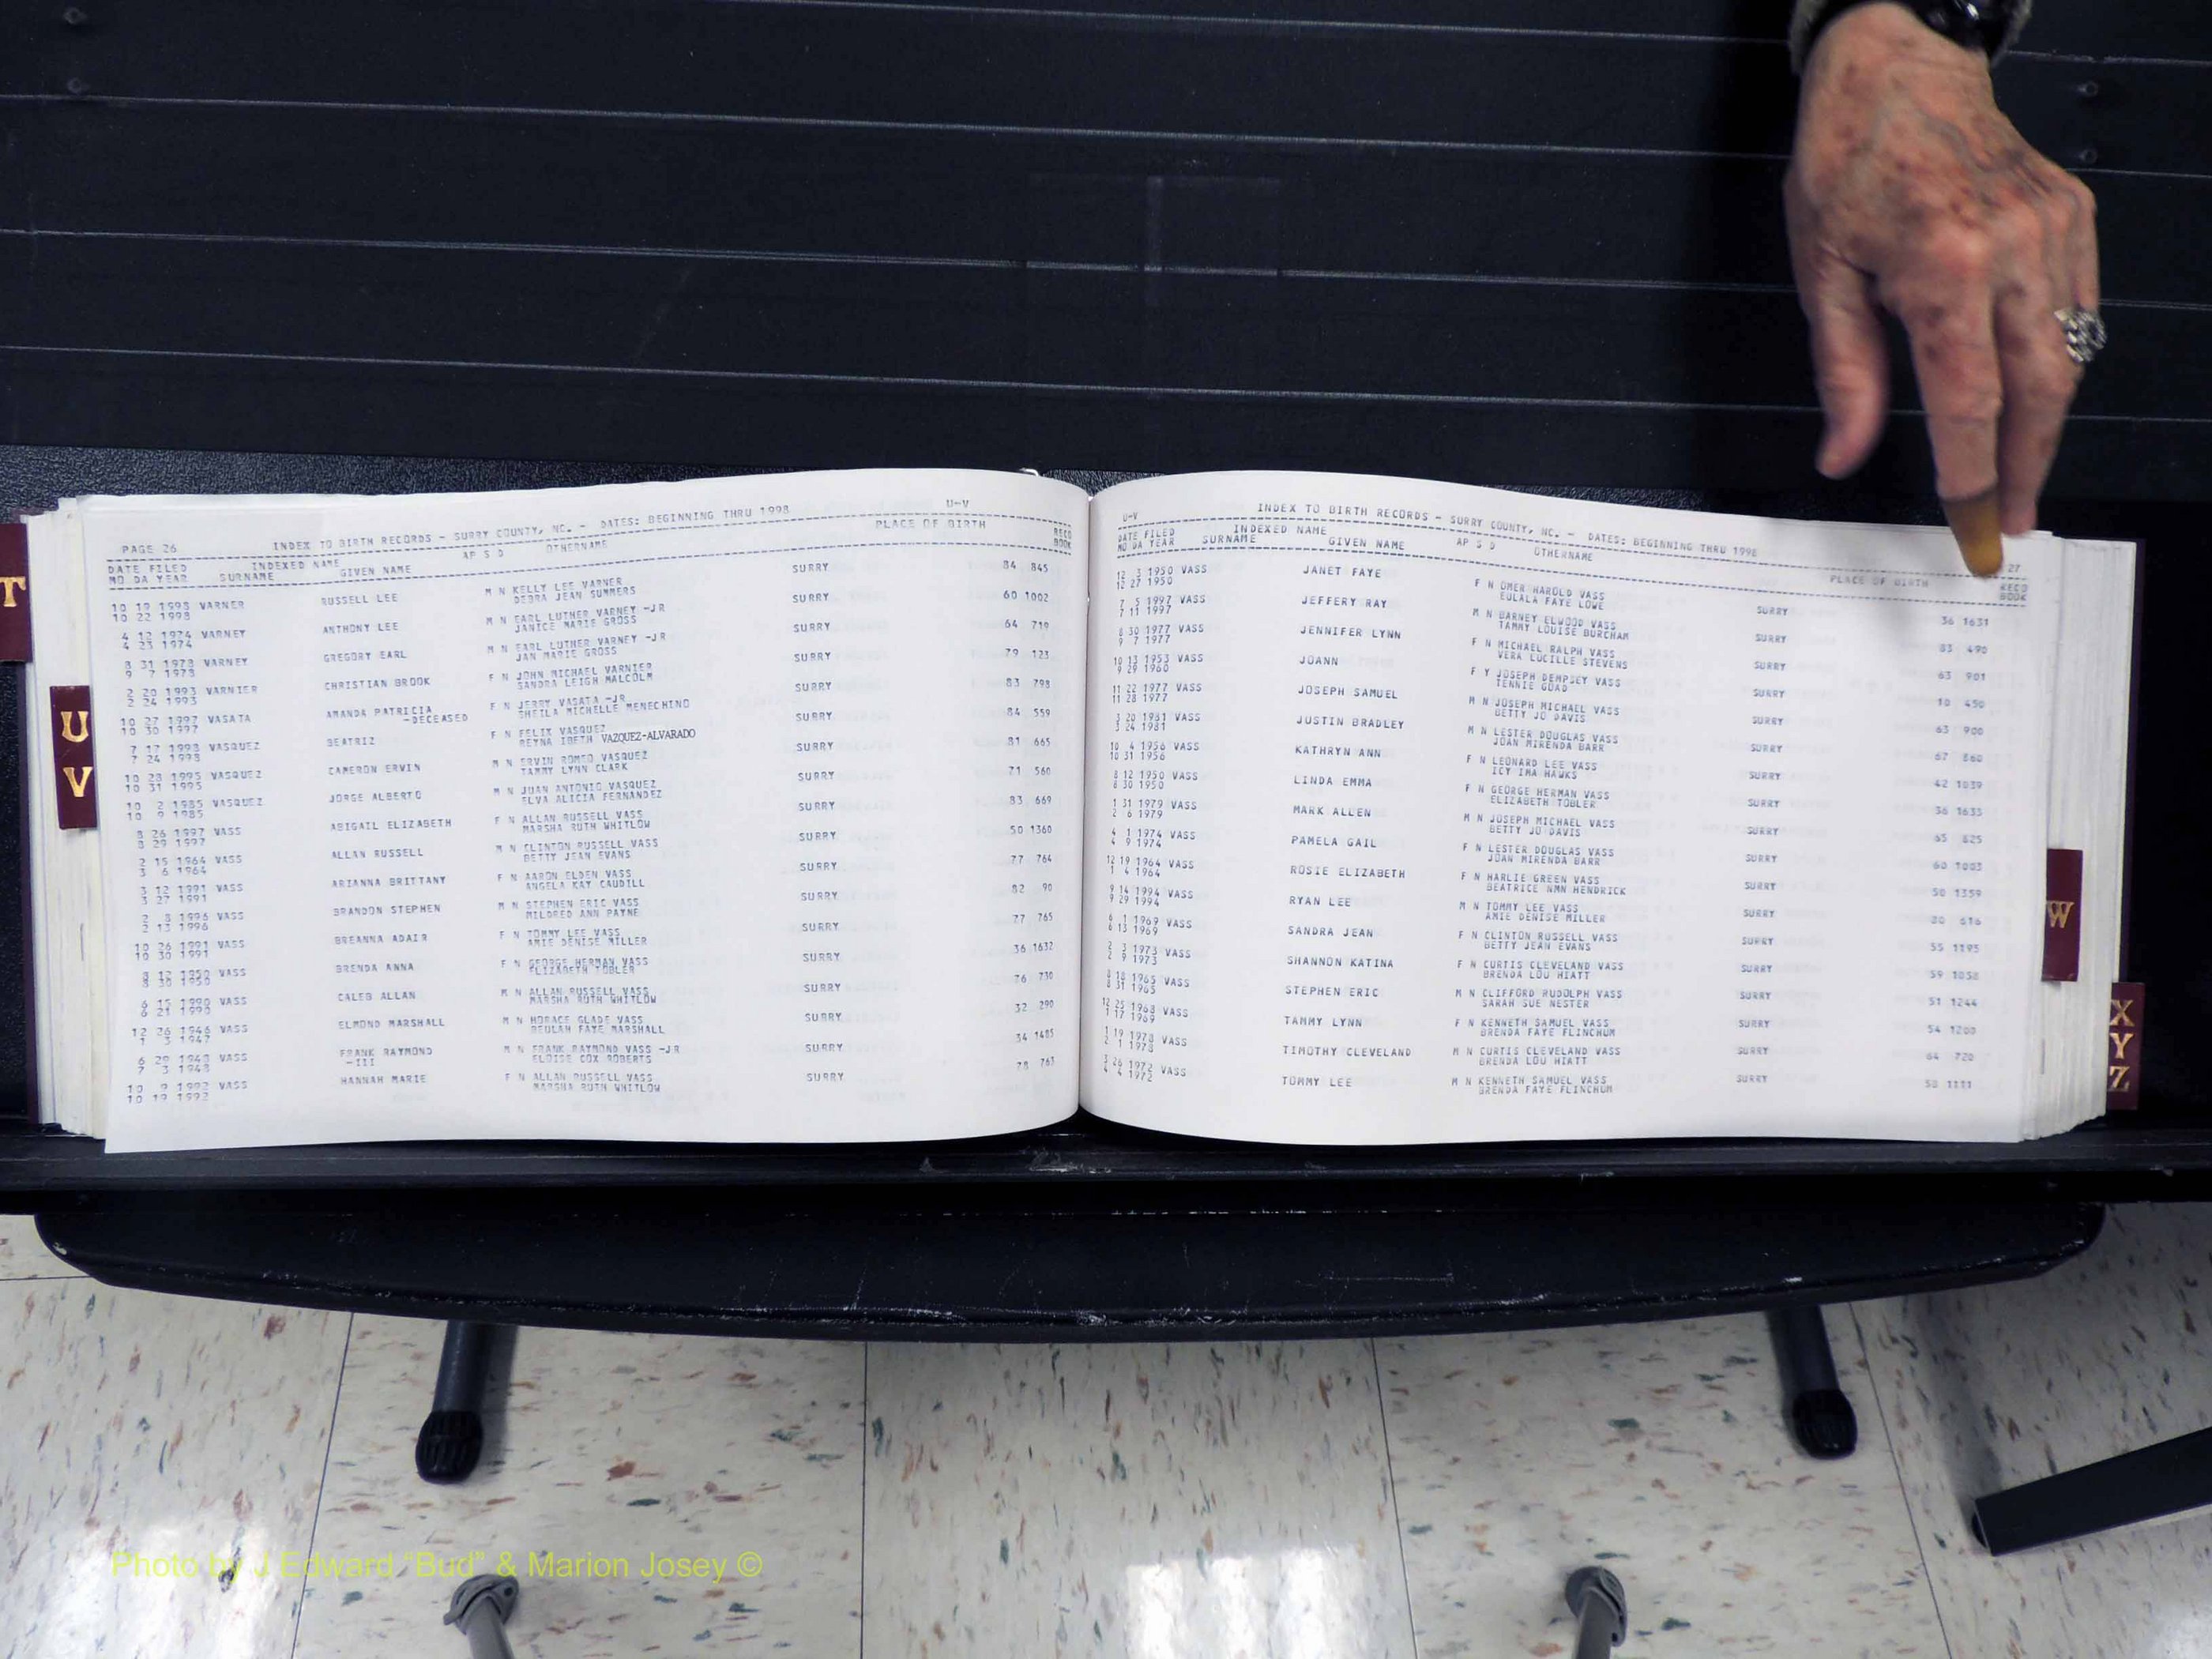 PAGE 26 INDEX TO BIRTH RECORDS - SURRY COUNTY, NC. - DATES: BEGINNING THRU 1998 U-V
DATE FILED INDEXED NAME AP S D OTHERNAME PLACE OF BIRTH RECD
MO DA YEAR SURNAME GIVEN NAME BOOK
10 19 1998 VARNER RUSSELL LEE M N KELLY LEE VARNER SURRY 84 845
10 22 1998 DEBRA JEAN SUMMERS
4 12 1974 VARNEY ANTHONY LEE M N EARL LUTHER VARNEY -JR SURRY 60 1002
4 23 1974 JANICE MARIE GROSS
8 31 1978 VARNEY GREGORY EARL M N EARL LUTHER VARNEY -JR SURRY 64 719
9 7 1978 JAN MARIE GROSS
2 20 1993 VARNIER CHRISTIAN BROOK F N JOHN MICHAEL VARNIER SURRY 79 123
2 24 1993 SANDRA LEIGH MALCOLM
10 27 1997 VASATA AMANDA PATRICIA F N JERRY VASATA -JR SURRY 83 798
10 30 1997 -DECEASED SHEILA MICHELLE MENECHINO
7 17 1998 VASQUEZ BEATRIZ F N FELIX VASQUEZ SURRY 84 559
7 24 1998 REYNA IBETH VAZQUEZ-ALVARADO
10 28 1995 VASQUEZ CAMERON ERVIN M N ERVIN ROMEO VASQUEZ SURRY 81 665
10 31 1995 TAMMY LYNN CLARK
10 2 1985 VASQUEZ JORGE ALBERTO M N JUAN ANTONIO VASQUEZ SURRY 71 560
10 9 1985 ELVA ALICIA FERNANDEZ
8 26 1997 VASS ABIGAIL ELIZABETH F N ALLAN RUSSELL VASS SURRY 83 669
8 29 1997 MARSHA RUTH WHITLOW
2 15 1964 VASS ALLAN RUSSELL M N CLINTON RUSSELL VASS SURRY 50 1360
3 6 1964 BETTY JEAN EVANS
3 12 1991 VASS ARIANNA BRITTANY F N AARON ELDEN VASS SURRY 77 764
3 27 1991 ANGELA KAY CAUDILL
2 8 1996 VASS BRANDON STEPHEN M N STEPHEN ERIC VASS SURRY 82 90
2 13 1996 MILDRED ANN PAYNE
10 26 1991 VASS BREANNA ADAIR F N TOMMY LEE VASS SURRY 77 765
10 30 1991 AMIE DENISE MILLER
8 12 1950 VASS BRENDA ANNA F N GEORGE HERMAN VASS SURRY 36 1632
8 30 1950 ELIZABETH TOBLER
6 15 1990 VASS CALEB ALLAN M N ALLAN RUSSELL VASS SURRY 76 730
6 21 1990 MARSHA RUTH WHITLOW
12 26 1946 VASS ELMOND MARSHALL M N HORACE GLADE VASS SURRY 32 290
1 3 1947 BEULAH FAYE MARSHALL
6 20 1948 VASS FRANK RAYMOND M N FRANK RAYMOND VASS -JR SURRY 34 1485
7 3 1948 -III ELOISE COX ROBERTS
10 9 1992 VASS HANNAH MARIE F N ALLAN RUSSELL VASS SURRY 78 763
10 19 1992 MARSHA RUTH WHITLOW
U-V INDEX TO BIRTH RECORDS - SURRY COUNTY, NC. - DATES: BEGINNING THRU 1998 27
DATE FILED INDEXED NAME AP S D OTHERNAME PLACE OF BIRTH RECD
MO DA YEAR SURNAME GIVEN NAME BOOK
12 3 1950 VASS JANET FAYE F N OMER HAROLD VASS SURRY 36 1631
12 27 1950 EULALA FAYE LOWE
7 5 1997 VASS JEFFERY RAY M N BARNEY ELWOOD VASS SURRY 83 490
7 11 1997 TAMMY LOUISE BURCHAM
8 30 1977 VASS JENNIFER LYNN F N MICHAEL RALPH VASS SURRY 63 901
9 7 1977 VERA LUCILLE STEVENS
10 13 1953 VASS JOANN F Y JOSEPH DEMPSEY VASS SURRY 10 450
9 29 1960 TENNIE GOAD
11 22 1977 VASS JOSEPH SAMUEL M N JOSEPH MICHAEL VASS SURRY 63 900
11 28 1977 BETTY JO DAVIS
3 20 1981 VASS JUSTIN BRADLEY M N LESTER DOUGLAS VASS SURRY 67 860
3 24 1981 JOAN MIRENDA BARR
10 4 1956 VASS KATHRYN ANN F N LEONARD LEE VASS SURRY 42 1039
10 31 1956 ICY IMA HAWKS
8 12 1950 VASS LINDA EMMA F N GEORGE HERMAN VASS SURRY 36 1633
8 30 1950 ELIZABETH TOBLER
1 31 1979 VASS MARK ALLEN M N JOSEPH MICHAEL VASS SURRY 65 825
2 6 1979 BETTY JO DAVIS
4 1 1974 VASS PAMELA GAIL F N LESTER DOUGLAS VASS SURRY 60 1003
4 9 1974 JOAN MIRENDA BARR
12 19 1964 VASS ROSIE ELIZABETH F N HARLIE GREEN VASS SURRY 50 1359
1 4 1964 BEATRICE NMN HENDRICK
9 14 1994 VASS RYAN LEE M N TOMMY LEE VASS SURRY 80 616
9 29 1994 AMIE DENISE MILLER
6 1 1969 VASS SANDRA JEAN F N CLINTON RUSSELL VASS SURRY 55 1195
6 13 1969 BETTY JEAN EVANS
2 3 1973 VASS SHANNON KATINA F N CURTIS CLEVELAND VASS SURRY 59 1058
2 9 1973 BRENDA LOU HIATT
8 18 1965 VASS STEPHEN ERIC M N CLIFFORD RUDOLPH VASS SURRY 51 1244
8 31 1965 SARAH SUE NESTER
12 25 1968 VASS TAMMY LYNN F N KENNETH SAMUEL VASS SURRY 54 1200
1 17 1969 BRENDA FAYE FLINCHUM
1 19 1978 VASS TIMOTHY CLEVELAND M N CURTIS CLEVELAND VASS SURRY 64 720
2 1 1978 BRENDA LOU HIATT
3 26 1972 VASS TOMMY LEE M N KENNETH SAMUEL VASS SURRY 58 1111
4 4 1972 BRENDA FAYE FLINCHUM
T
U
V
W
X
Y
Z
Photo by J Edward "Bud" & Marion Josey ©